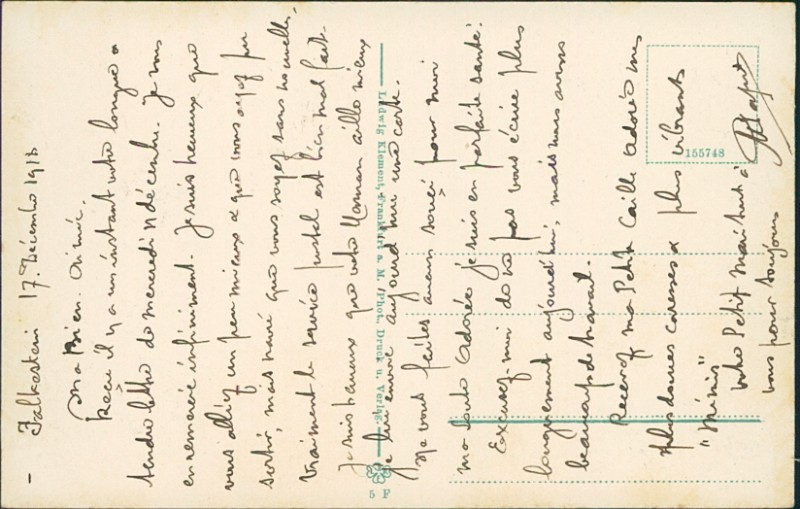 Falkestein 17. Décembre 1913
Ma Bien. Aimée.
Recu il y a un instant votre longue &
tendre lettre de mercredi 11 décembre. Je vous
en remercie infiniment. Je suis heureux que
vous alliez un peu mieux & que vous soyez pu
sortir, mais navré que vous soyez sans nouvelles.
Vraiment le service postal est bien mal fait.
Je suis heureux que votre Maman aille mieux
Je lui envoie aujourd'hui une carte.
Ne vous faites aucun souci pour moi
ma toute Adorée je suis en parfaite santé!
Excusez-moi de ne pas vous écrire plus
longuement aujourd'hui, mais nous avons
beaucoup de travail.
Recevez ma Petite Caille adorée mes
plus douces caresses & plus vibrants
"Mimis"
votre Petit
vous pour toujours
Ludwig Klement, Frankfurt a. M. /Phot. Druck u. Verlag.
155748
5 F